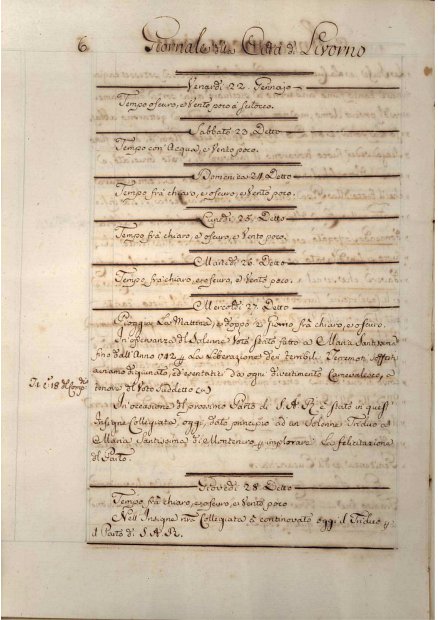 6 Giornale della Città di Livorno
Venardì 22. Gennajo
Tempo oscuro, e Vento poco a Scilocco.
Sabbato 23. Detto
Tempo con Acqua, e Vento poco.
Domenica 24. Detto
Tempo frà chiaro, e oscuro, e Vento poco.
Lunedì 25. Detto
Tempo frà chiaro, e oscuro, e Vento poco.
Martedì 26. Detto
Tempo frà chiaro, e oscuro, e Vento poco.
Mercordì 27. Detto
Pioggia La Mattina, e doppo Giorno frà chiaro, e oscuro.
In osservanza del Solenne Voto stato fatto a Maria Santissima
fino dall' Anno 1742 La Liberazione dei terribili Terremoti
aviamo digiunato, ed esentati da ogni divertimento Carnevalesco, e
tenore del Voto suddetto (a)
In occasione del prossimo Parto di S. A. R. è stato in quest'
Insigne Collegiata, oggi, dato principio ad un Solenne Triduo a
Maria Santissima di Montenero, implorare La felicitazione
del Parto.
Giovedì 28. Detto
Tempo frà chiaro, e oscuro, e Vento poco
Nell' Insigne Collegiata è continovato oggi il Triduo
il Parto di S. A. R.